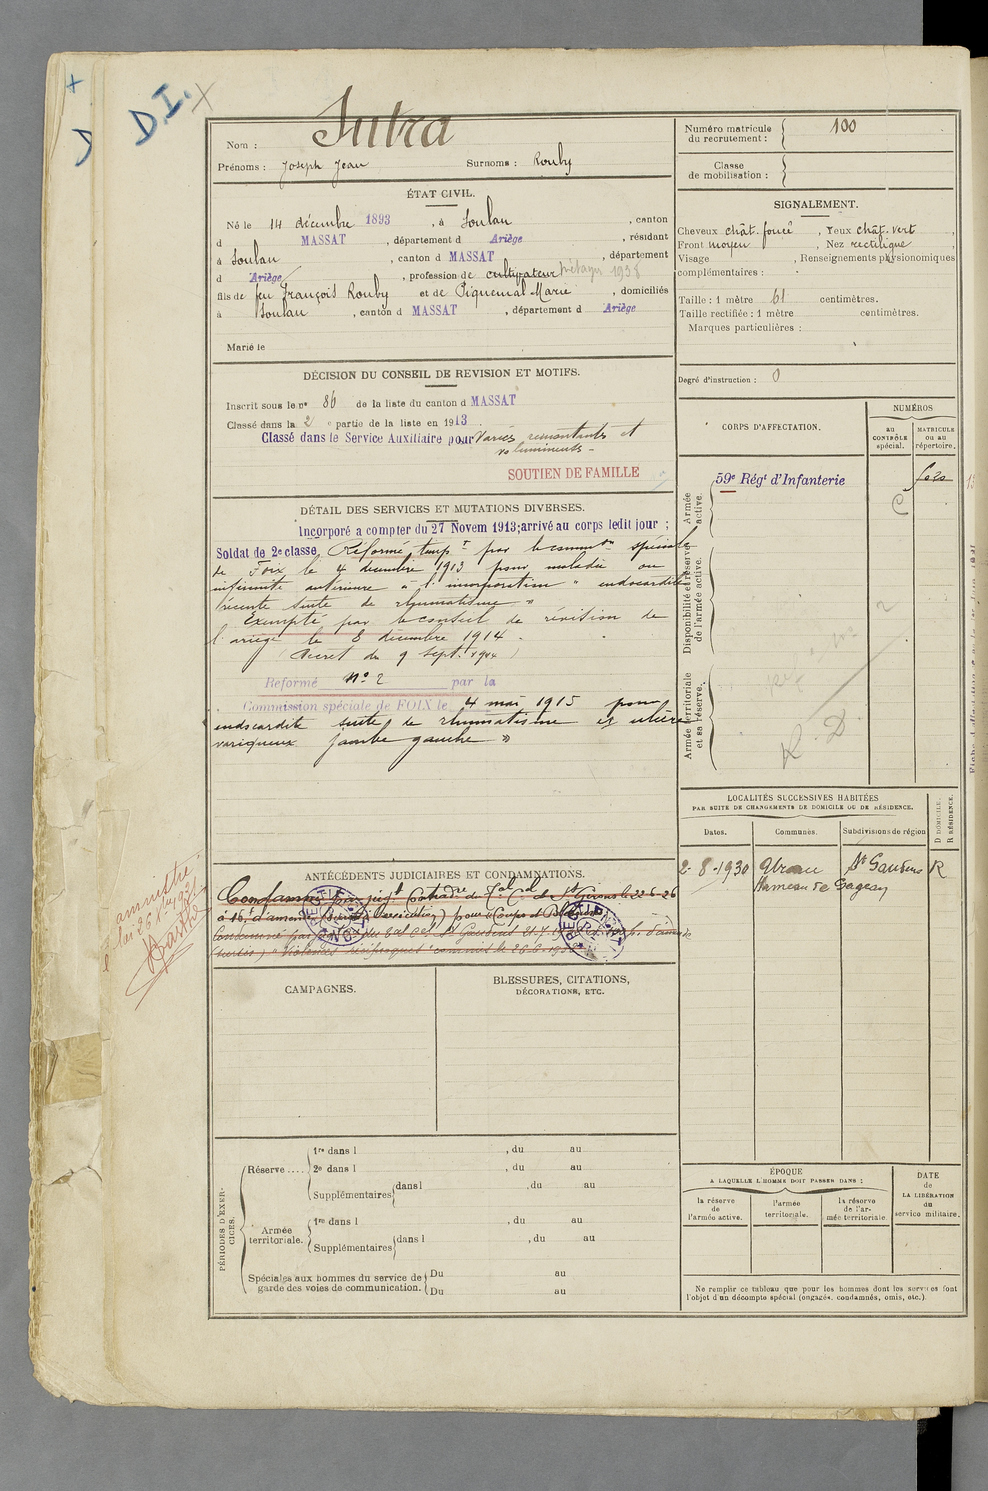 +
D
D.I. X
Nom : Jutra
Prénoms : Joseph Jean Surnoms : Rouby
ÉTAT CIVIL.
Né le 14 décembre 1893, à Soulan, canton
d MASSAT, département d Ariège, résidant
à Soulan, canton d MASSAT, département
d Ariège, profession de cultivateur métayer 1938
fils de feu François Rouby et de Piquemal Marie, domiciliés
à Soulan, canton d MASSAT, département d Ariège
Marié le
DÉCISION DU CONSEIL DE REVISION ET MOTIFS.
Inscrit sous le n° 86 de la liste du canton d MASSAT
Classé dans la 2e partie de la liste en 1913
Classé dans le Service Auxiliaire pour Varices remontants et
volumineuses
SOUTIEN DE FAMILLE
DÉTAIL DES SERVICES ET MUTATIONS DIVERSES.
Incorporé a compter du 27 Novem 1913; arrivé au corps ledit jour ;
Soldat de 2e classe. Réformé temp.r par la comm.on spéciale
de Foix le 4 décembre 1913 pour maladie ou
infirmité antérieure à l'incorporation " endocardite
récente suite de rhumatisme "
Exempté par le conseil de révision de
l'ariège le 8 décembre 1914.
(Décret du 9 sept. 1914)
Réformé N° 2 par la
Commission spéciale de FOIX le 4 mai 1915 pour
endocardite suite de rhumatisme et ulcère
variqueux jambe gauche "
ANTÉCÉDENTS JUDICIAIRES ET CONDAMNATIONS.
Condamné par jugt Contradre du Tal Cel de St Girons le 22-6-26
à 16f d'amende (sursis) pour "Coups et Blessures"
Condamné par du Tal Cel St Gaudens d'amende
(sursis) "Violences réciproques" commis le 26.6.
amnistié
loi 26 Xbre 1931
CAMPAGNES.
BLESSURES, CITATIONS,
DÉCORATIONS, ETC.
PÉRIODES D'EXERCICES.
Réserve .... 1re dans l , du au
2e dans l , du au
Supplémentaires dans l , du au
Armée territoriale. 1re dans l , du au
Supplémentaires dans l , du au
Spéciales aux hommes du service de garde des voies de communication. Du au
Du au
Numéro matricule du recrutement : 100
Classe de mobilisation :
SIGNALEMENT.
Cheveux chât. foncé, Yeux chât. vert,
Front moyen, Nez rectiligne,
Visage , Renseignements physionomiques
complémentaires :
Taille : 1 mètre 61 centimètres.
Taille rectifiée : 1 mètre centimètres.
Marques particulières :
Degré d'instruction : 0
CORPS D'AFFECTATION.
NUMÉROS
au CONTRÔLE spécial.
MATRICULE ou au répertoire.
Armée active.
59e Régt d'Infanterie
Disponibilité et réserve de l'armée active.
Armée territoriale et sa réserve.
R. D.
LOCALITÉS SUCCESSIVES HABITÉES
PAR SUITE DE CHANGEMENTS DE DOMICILE OU DE RÉSIDENCE.
Dates. Communes. Subdivisions de région
D DOMICILE. R RÉSIDENCE.
2-8-1930 Urau St Gaudens R
Hameau de
ÉPOQUE
A LAQUELLE L'HOMME DOIT PASSER DANS :
la réserve de l'armée active.
l'armée territoriale.
la réserve de l'armée territoriale.
DATE de LA LIBÉRATION du service militaire.
Ne remplir ce tableau que pour les hommes dont les services font
l'objet d'un décompte spécial (engagés, condamnés, omis, etc.).